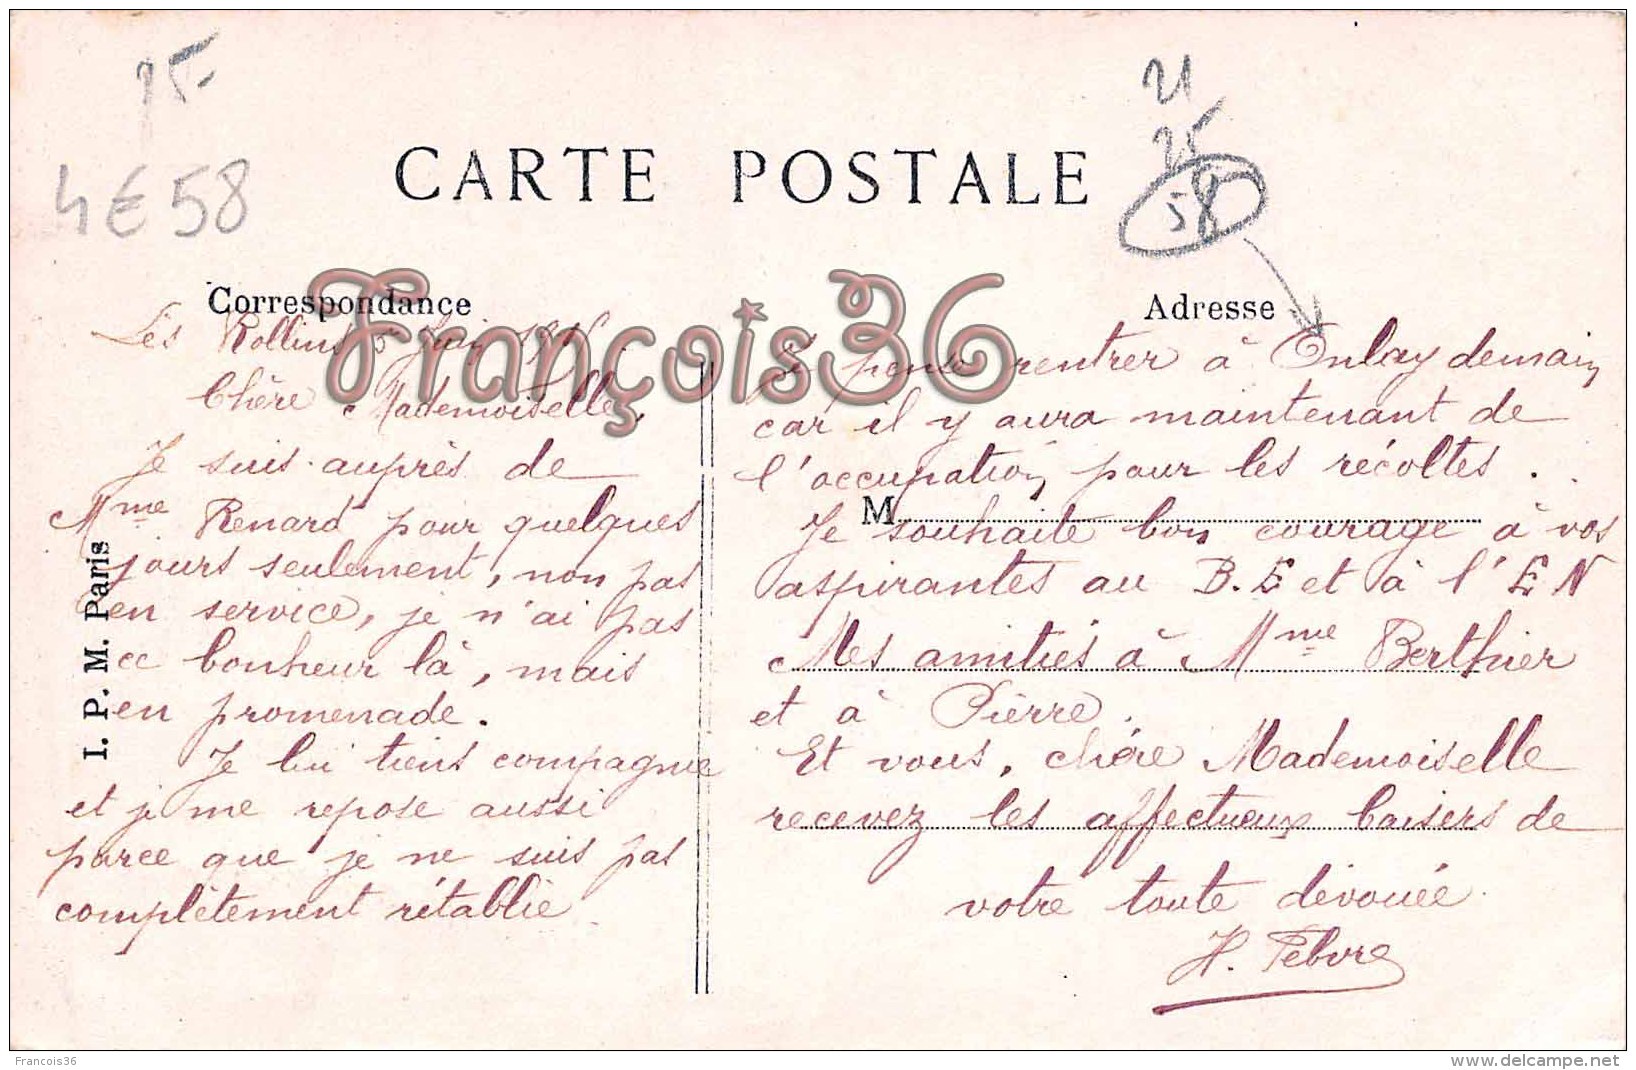 25-
4€ 58
21
25
58
CARTE POSTALE
Correspondance
Adresse
François36
I. P. M. Paris
M
Les Rollins 5 Juin
Chère Mademoiselle,
Je suis auprès de
Mme Renard pour quelques
jours seulement, non pas
en service, je n'ai pas
ce bonheur là, mais
en promenade.
Je lui tiens compagnie
et je me repose aussi
parce que je ne suis pas
complètement rétablie
Je pense rentrer à Onlay demain
car il y aura maintenant de
l'occupation pour les récoltes.
Je souhaite bon courage à vos
aspirantes au B.E et à l'EN
Mes amitiés à Mme Berthier
et à Pierre.
Et vous, chère Mademoiselle
recevez les affectueux baisers de
votre toute dévouée
H. Febvre
Francois36
www.delcampe.net